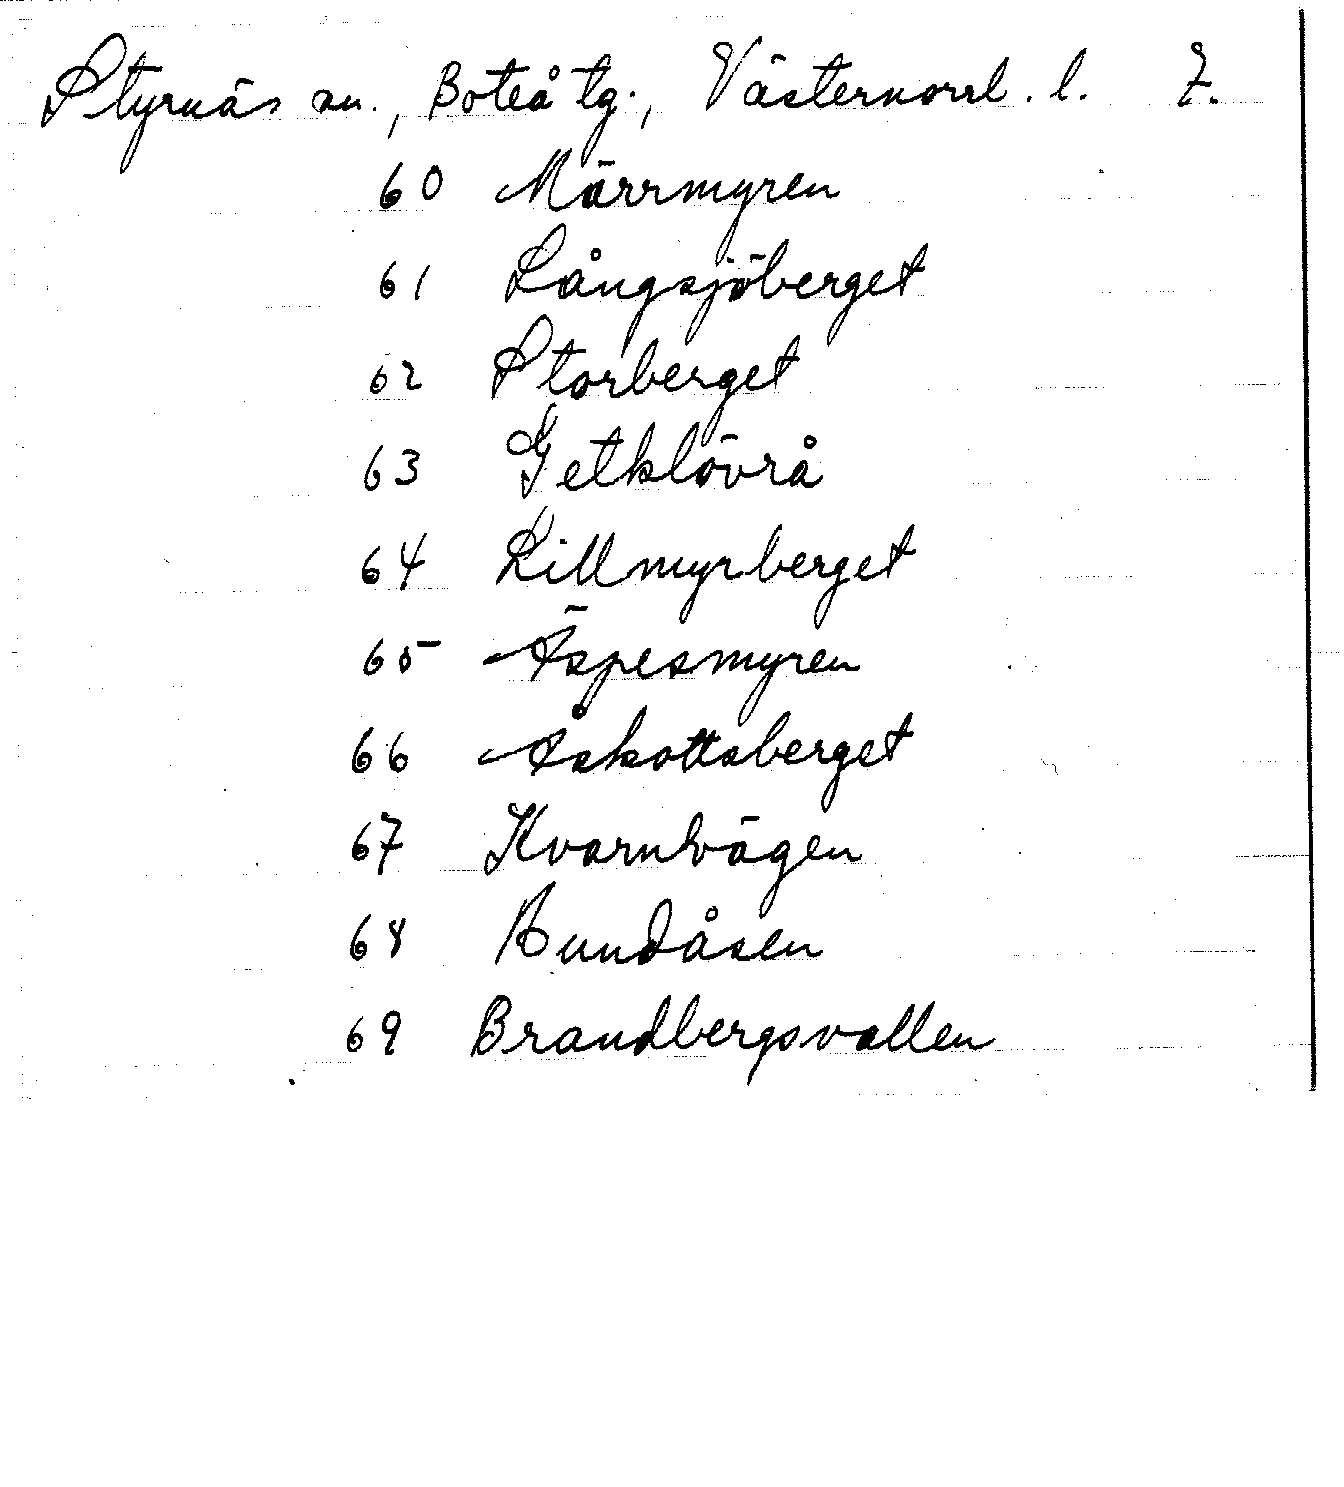 Styrnäs sn., Boteå tg., Västernorrl. l. 7.
60 Märrmyren
61 Långsjöberget
62 Storberget
63 Getklövrå
64 Lillmyrberget
65 Äspesmyren
66 Åskottsberget
67 Kvarnvägen
68 Bundåsen
69 Brandbergsvallen